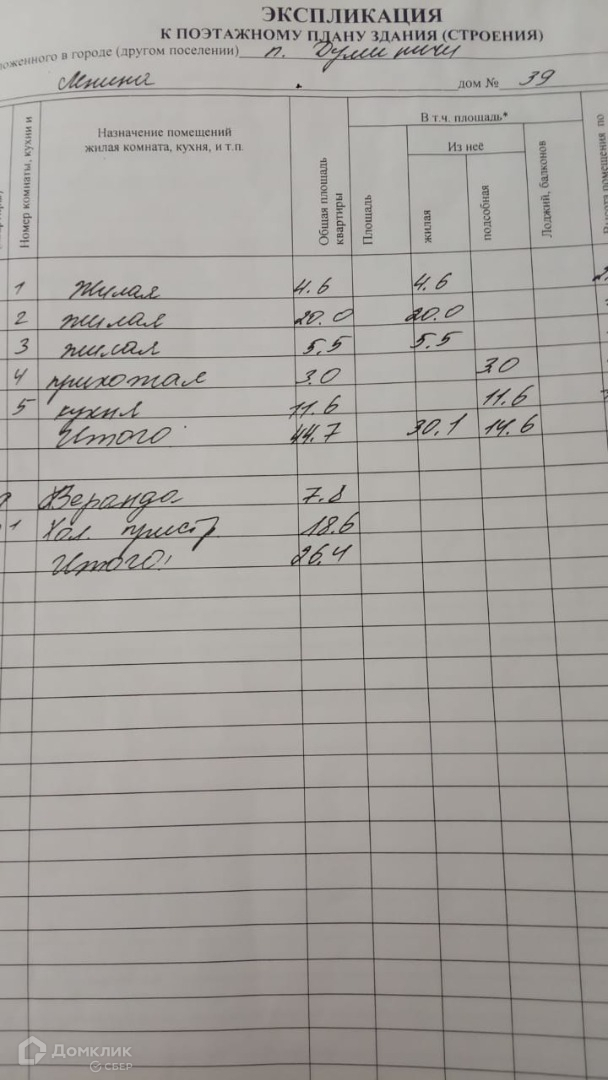 ЭКСПЛИКАЦИЯ
К ПОЭТАЖНОМУ ПЛАНУ ЗДАНИЯ (СТРОЕНИЯ)
оженного в городе (другом поселении) п. Думиничи
Ленина дом № 39
Номер комнаты, кухни и
Назначение помещений
жилая комната, кухня, и т.п.
Общая площадь
квартиры
В т.ч. площадь*
Площадь
Из неё
жилая
подсобная
Лоджий, балконов
Высота помещения по
1 Жилая 4.6 4.6
2 жилая 20.0 20.0
3 жилая 5.5 5.5
4 прихожая 3.0 3.0
5 кухня 11.6 11.6
Итого 44.7 30.1 14.6
Веранда 7.8
1 Хол. пристр 18.6
Итого: 26.4
Домклик
СБЕР